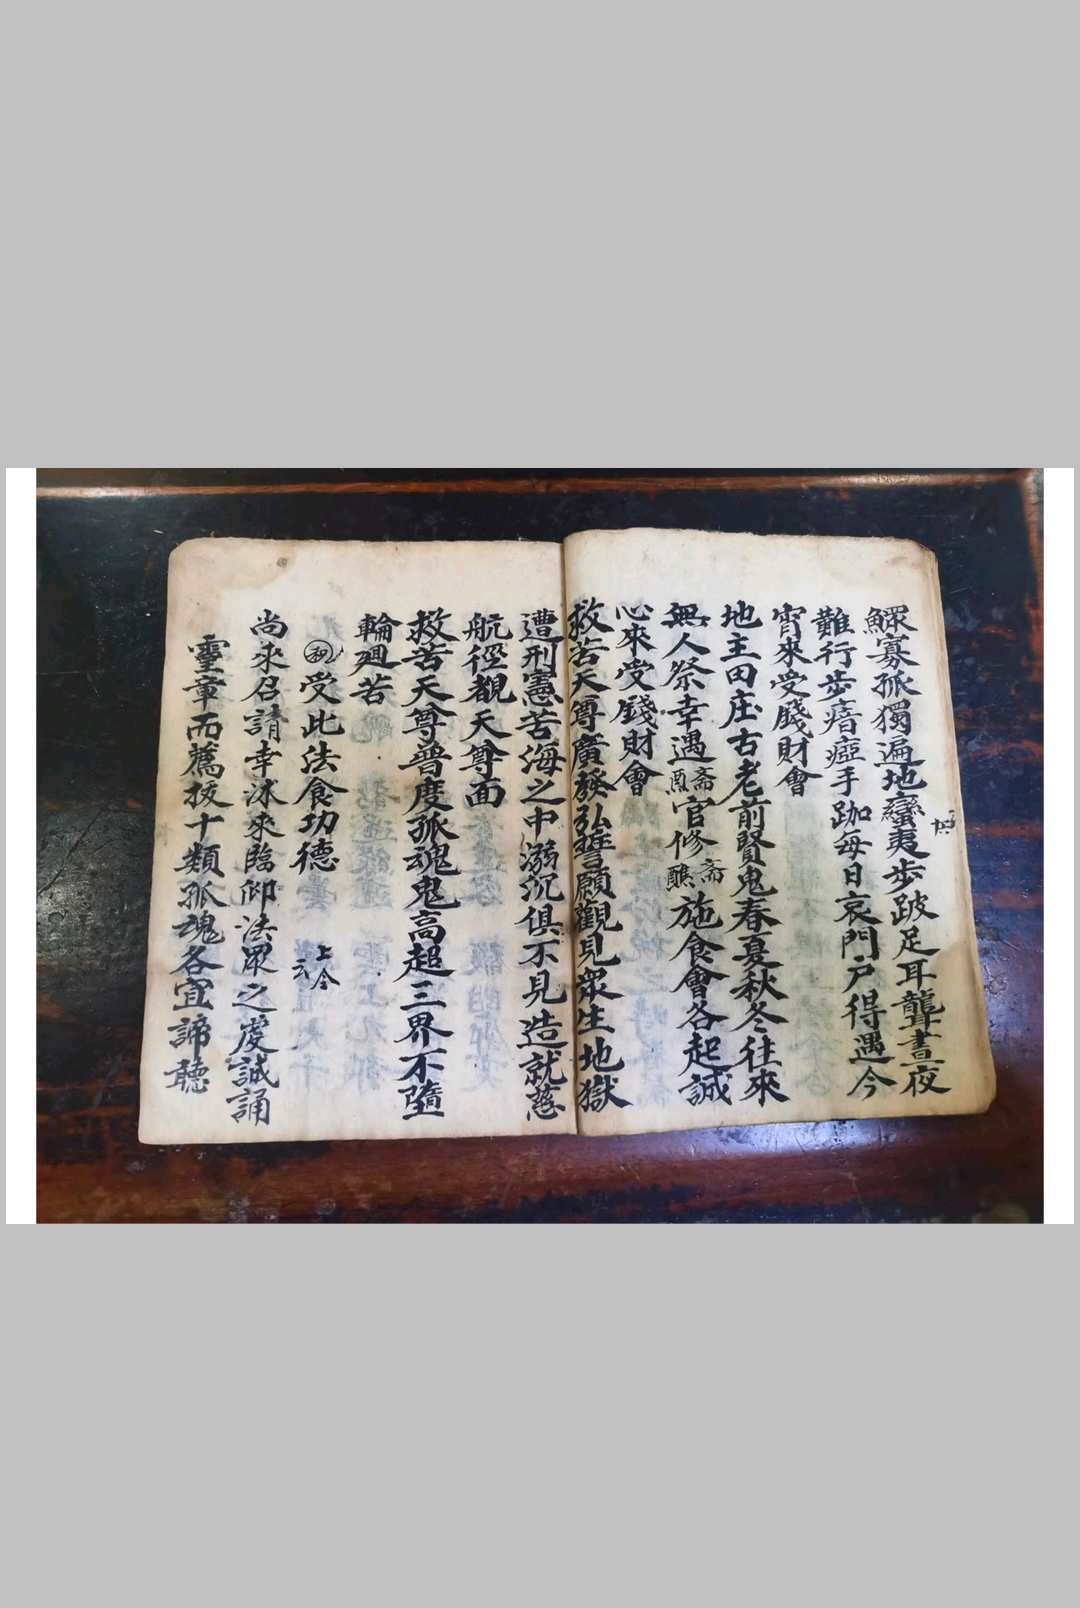 鰥寡孤獨遍地蠻夷步跛足耳聾晝夜
難行步瘖瘂手跏每日哀門戶得遇今
宵來受錢財會
地主田庄古老前賢鬼春夏秋冬往來
無人祭幸遇齋官修齋醮施食會各起誠
心來受錢財會
救苦天尊廣發弘誓願觀見衆生地獄
遭刑憲苦海之中溺沉俱不見造就慈
航徑覩天尊面
救苦天尊普度孤魂鬼高超三界不墮
輪廻苦
和受此法食功德 上今云
尚來召請幸沐來臨仰法眾之虔誠誦
靈章而薦拔十類孤魂各宜諦聽